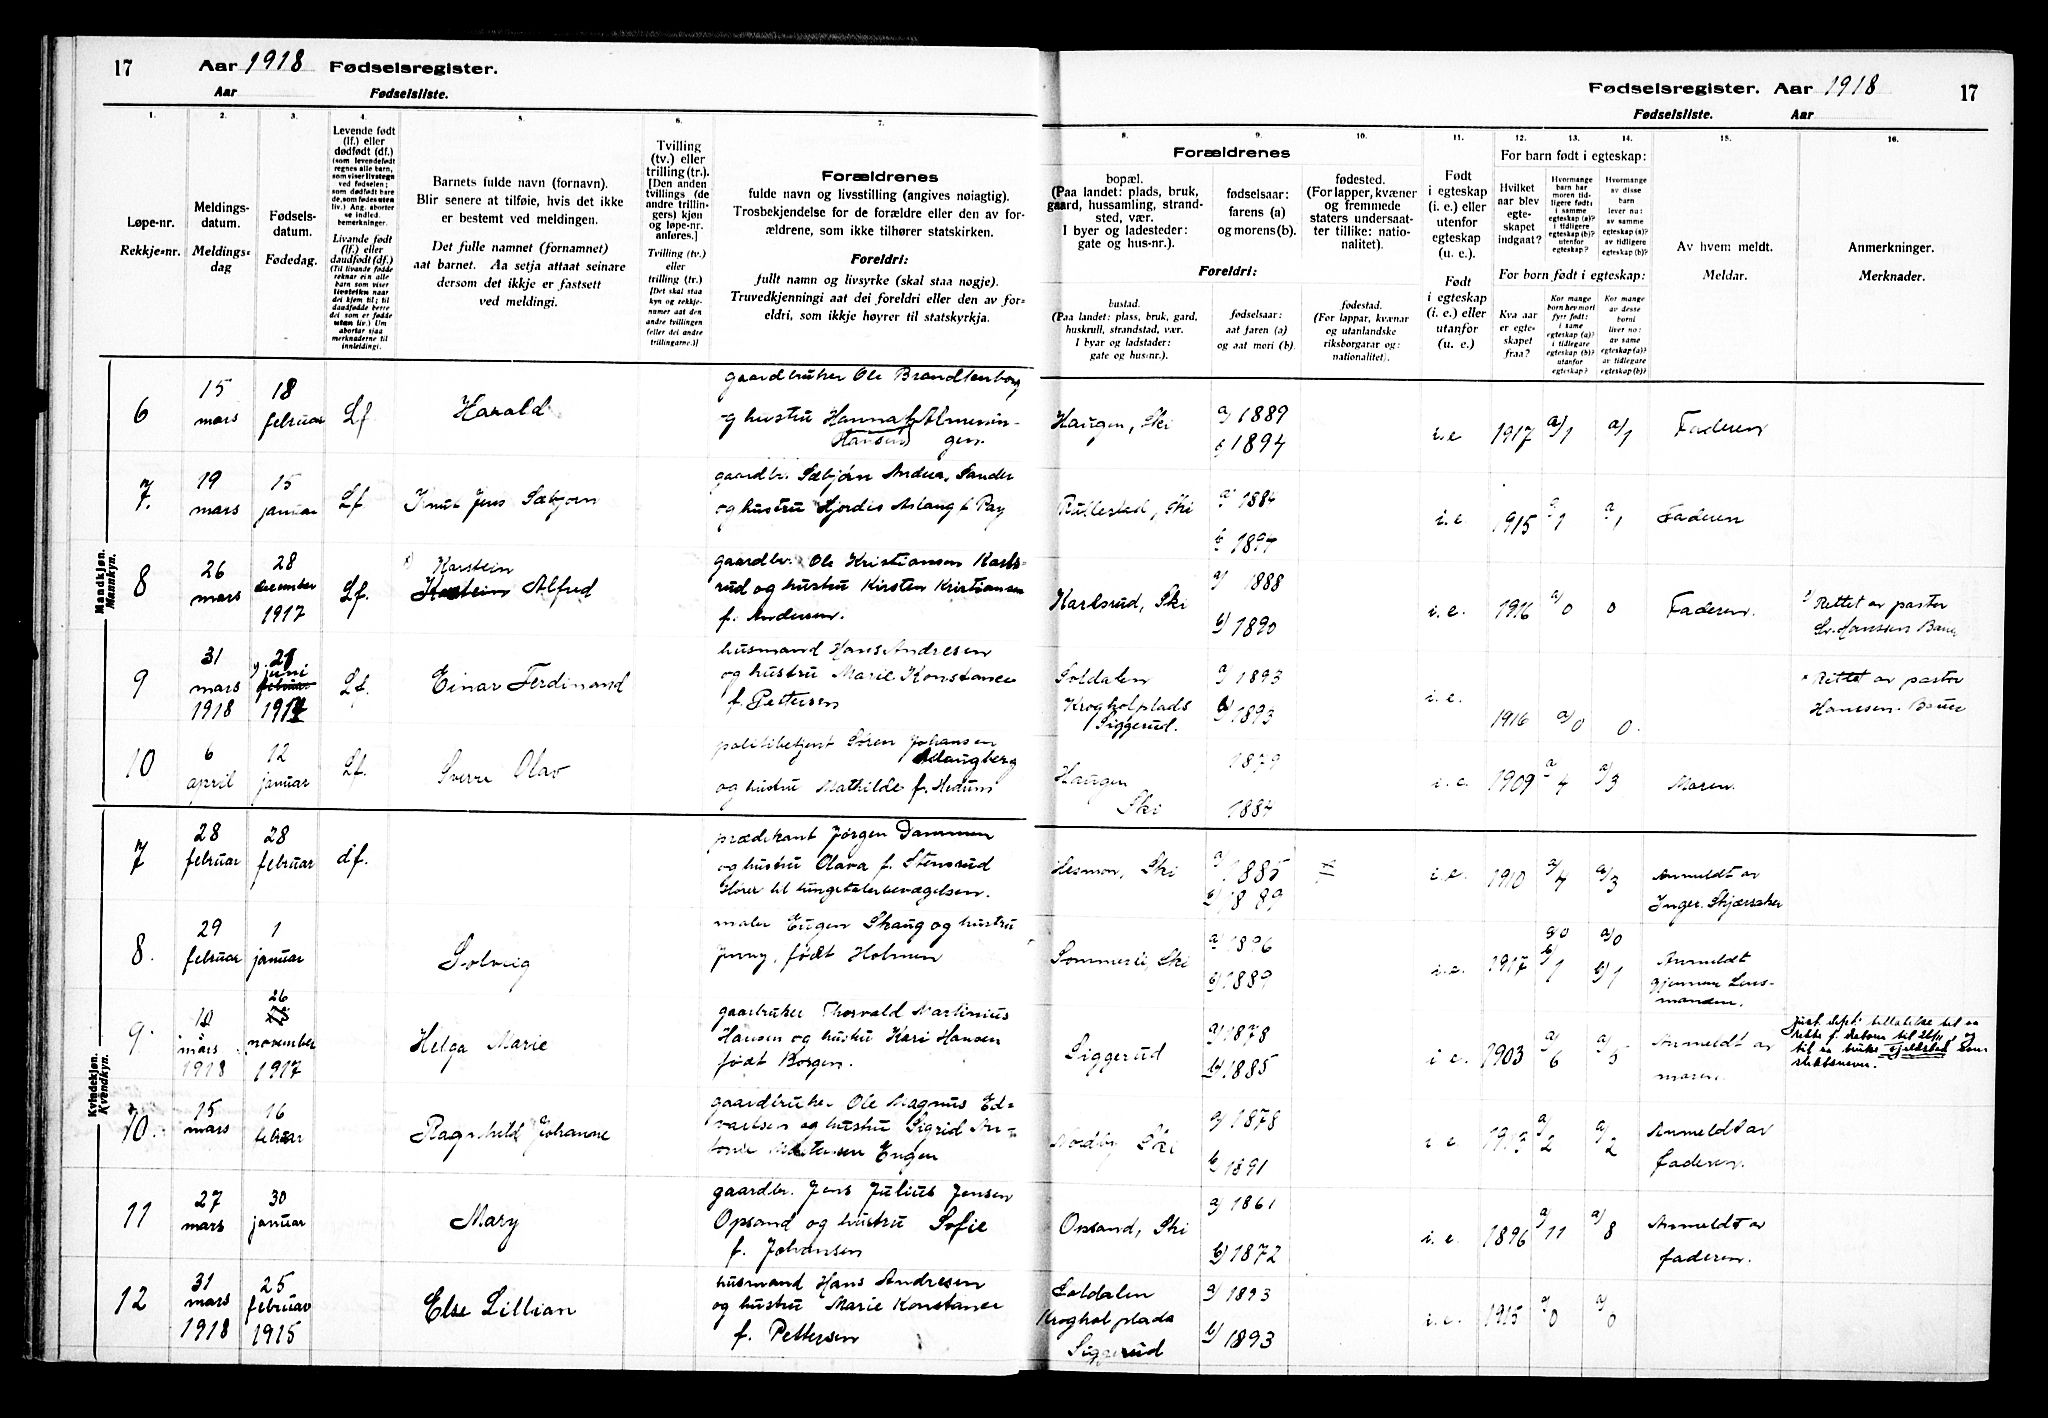 17 Aar 1918 Fødselsregister.
Aar Fødselsliste.
Fødselsregister. Aar 1918 17
Fødselsliste. Aar
1. 2. 3. 4. 5. 6. 7.
Løpe-nr.
Rekkje-nr.
Meldings-
datum.
Meldings-
dag
Fødsels-
datum.
Fødedag.
Levende født
(lf.) eller
dødfødt (df.)
(som levendefødt
regnes alle barn,
som viser livstegn
ved fødselen;
som dødfødt bare
de, som fødes uten
liv.) Ang. aborter
se indled.
bemerkninger.
Livande født
(lf.) eller
daudfødt (df.)
(Til livande fødde
reknar ein alle
barn som viser
livsteikn naar
dei kjem til; til
daudfødde berre
dei som er fødde
utan liv.) Um
abortar sjaa
merknaderne til
innleidingi.
Barnets fulde navn (fornavn).
Blir senere at tilføie, hvis det ikke
er bestemt ved meldingen.
Det fulle namnet (fornamnet)
aat barnet. Aa setja attaat seinare
dersom det ikkje er fastsett
ved meldingi.
Tvilling
(tv.) eller
trilling (tr.).
[Den anden
tvillings (de
andre trillin-
gers) kjøn
og løpe-nr.
anføres.]
Tvilling (tv.)
eller
trilling (tr.)
[Det skal staa
kyn og rekkje-
numer aat den
andre tvillingen
(eller dei andre
trillingarne.)]
Forældrenes
fulde navn og livsstilling (angives nøiagtig).
Trosbekjendelse for de forældre eller den av for-
ældrene, som ikke tilhører statskirken.
Foreldri:
fullt namn og livsyrke (skal staa nøgje).
Truvedkjenningi aat dei foreldri eller den av for-
eldri, som ikkje høyrer til statskyrkja.
8. 9. 10. 11. 12. 13. 14. 15. 16.
Forældrenes
bopæl.
(Paa landet: plads, bruk,
gaard, hussamling, strand-
sted, vær.
I byer og ladesteder:
gate og hus-nr.).
fødselsaar:
farens (a)
og morens (b).
fødested.
(For lapper, kvæner
og fremmede
staters undersaat-
ter tillike: natio-
nalitet).
Foreldri:
bustad.
(Paa landet: plass, bruk, gard,
huskrull, strandstad, vær.
I byar og ladstader:
gate og hus-nr.).
fødselsaar:
aat faren (a)
og aat mori (b).
fødestad.
(For lappar, kvænar
og utanlandske
riksborgarar og:
nationalitet).
Født
i egteskap
(i. e.) eller
utenfor
egteskap
(u. e.).
Født
i egteskap
(i. e.) eller
utanfor
(u. e.).
For barn født i egteskap:
Hvilket
aar blev
egte-
skapet
indgaat?
Hvormange
barn har
moren tid-
ligere født:
i samme
egteskap (a)?
i tidligere
egteskap (b)?
utenfor
egteskap?
Hvormange
av disse
barn
lever nu:
av samme
egteskap (a)?
av tidligere
egteskap (b)?
For born født i egteskap:
Kva aar
er egte-
skapet
fraa?
Kor mange
born hev mori
fyrr født:
i same
egteskap (a)?
i tidlegare
egteskap (b)?
utanfor
egteskap?
Kor mange
av desse
borni
liver no:
av same
egteskap (a)?
av tidlegare
egteskap (b)?
Av hvem meldt.
Meldar.
Anmerkninger.
Merknader.
Mandkjøn.
Mannkyn.
6 15 mars 18 februar Lf Harald
gaardbruker Ole Brandtenborg
og hustru Hanna f. Almenin-
(Hansen) gen.
Haugen, Ski a/ 1889 b/ 1894 i.e 1917 a/1 a/1 Faderen
7. 19 mars 15 januar Lf Knut Jens Sæbjørn
gaardbr. Sæbjørn Andeas Sander
og hustru Hjordis Aslaug f. Pay
Rullestad, Ski a 1884 b 1897 i.e. 1915 a/1 a/1 Faderen
8 26 mars 28 december 1917 Lf. Karstein
Alfred
gaardbr. Ole Kristiansen Karls-
rud og hustru Kirsten Kristiansen
f. Andersen.
Karlsrud, Ski a/ 1888 b/ 1890 i.e. 1916 a/0 0 Faderen. Rettet av pastor
Hanssen Bauer
9 31 mars 1918 21 juni februar 1917 Lf. Einar Ferdinand
husmand Hans Andresen
og hustru Marie Konstance
f. Pettersen
Soldalen
Krogholplads
Siggerud. a/ 1893 b/ 1893 i.e. 1916 a/0 0. Rettet av pastor
Hanssen-Bauer
10 6 april 12 januar Lf. Sverre Olav
politibetjent Søren Johansen
Aslaugberg
og hustru Mathilde f. Hedum
Haugen
Ski 1879 1884 i.e. 1909 a 4 a/3 Moren.
Kvindekjøn.
Kvendkyn.
7 28 februar 28 februar df.
prædikant Jørgen Dammen
og hustru Olava f. Stensrud
Hører til tungetalerbevægelsen.
Hesmon, Ski a 1885 b/ 1889 i.e. 1910 a/4 a/3 Anmeldt av
Inger Skjærsaker
8. 29 februar 1 januar Solveig
maler Eugen Skaug og hustru
Jenny, født Holmen
Sommerli, Ski a/ 1896 b/ 1889 i.e. 1917 a/0 b/1 a/0 b/1 Anmeldt
gjennem Lens-
manden.
9. 10 mars 1918 26 november 1917 Helga Marie
gaardbruker Thorvald Martinius
Hansen og hustru Kari Hansen
født Borgen.
Siggerud a/ 1878 b/ 1885 i e. 1903 a/6 a/5 Anmeldt av
moren. Just. dept. tillatelse til aa
rette f. datoen til 26/11 og
til aa bruke Fjeldstad som
slektsnavn.
10. 15 mars 16 februar Ragnhild Johanne
gaardbruker Ole Magnus Ed-
vartsen og hustru Sigrid An-
tonie Engen
Nordby Ski a/ 1878 b 1891 i e. 1913 a/2 a/2 Anmeldt av
faderen.
11 27 mars 30 januar Mary
gaardbr. Jens Julius Jensen
Opsand og hustru Sofie
f. Johansen
Opsand, Ski a/ 1861 b/ 1872 i.e. 1896 a/11 a/8 Anmeldt av
faderen.
12 31 mars 1918 25 februar 1915 Else Lillian
husmand Hans Andresen
og hustru Marie Konstance
f. Pettersen
Soldalen
Kroghol plads
Siggerud a/ 1893 b/ 1893 i.e. 1915 a/0 a/0